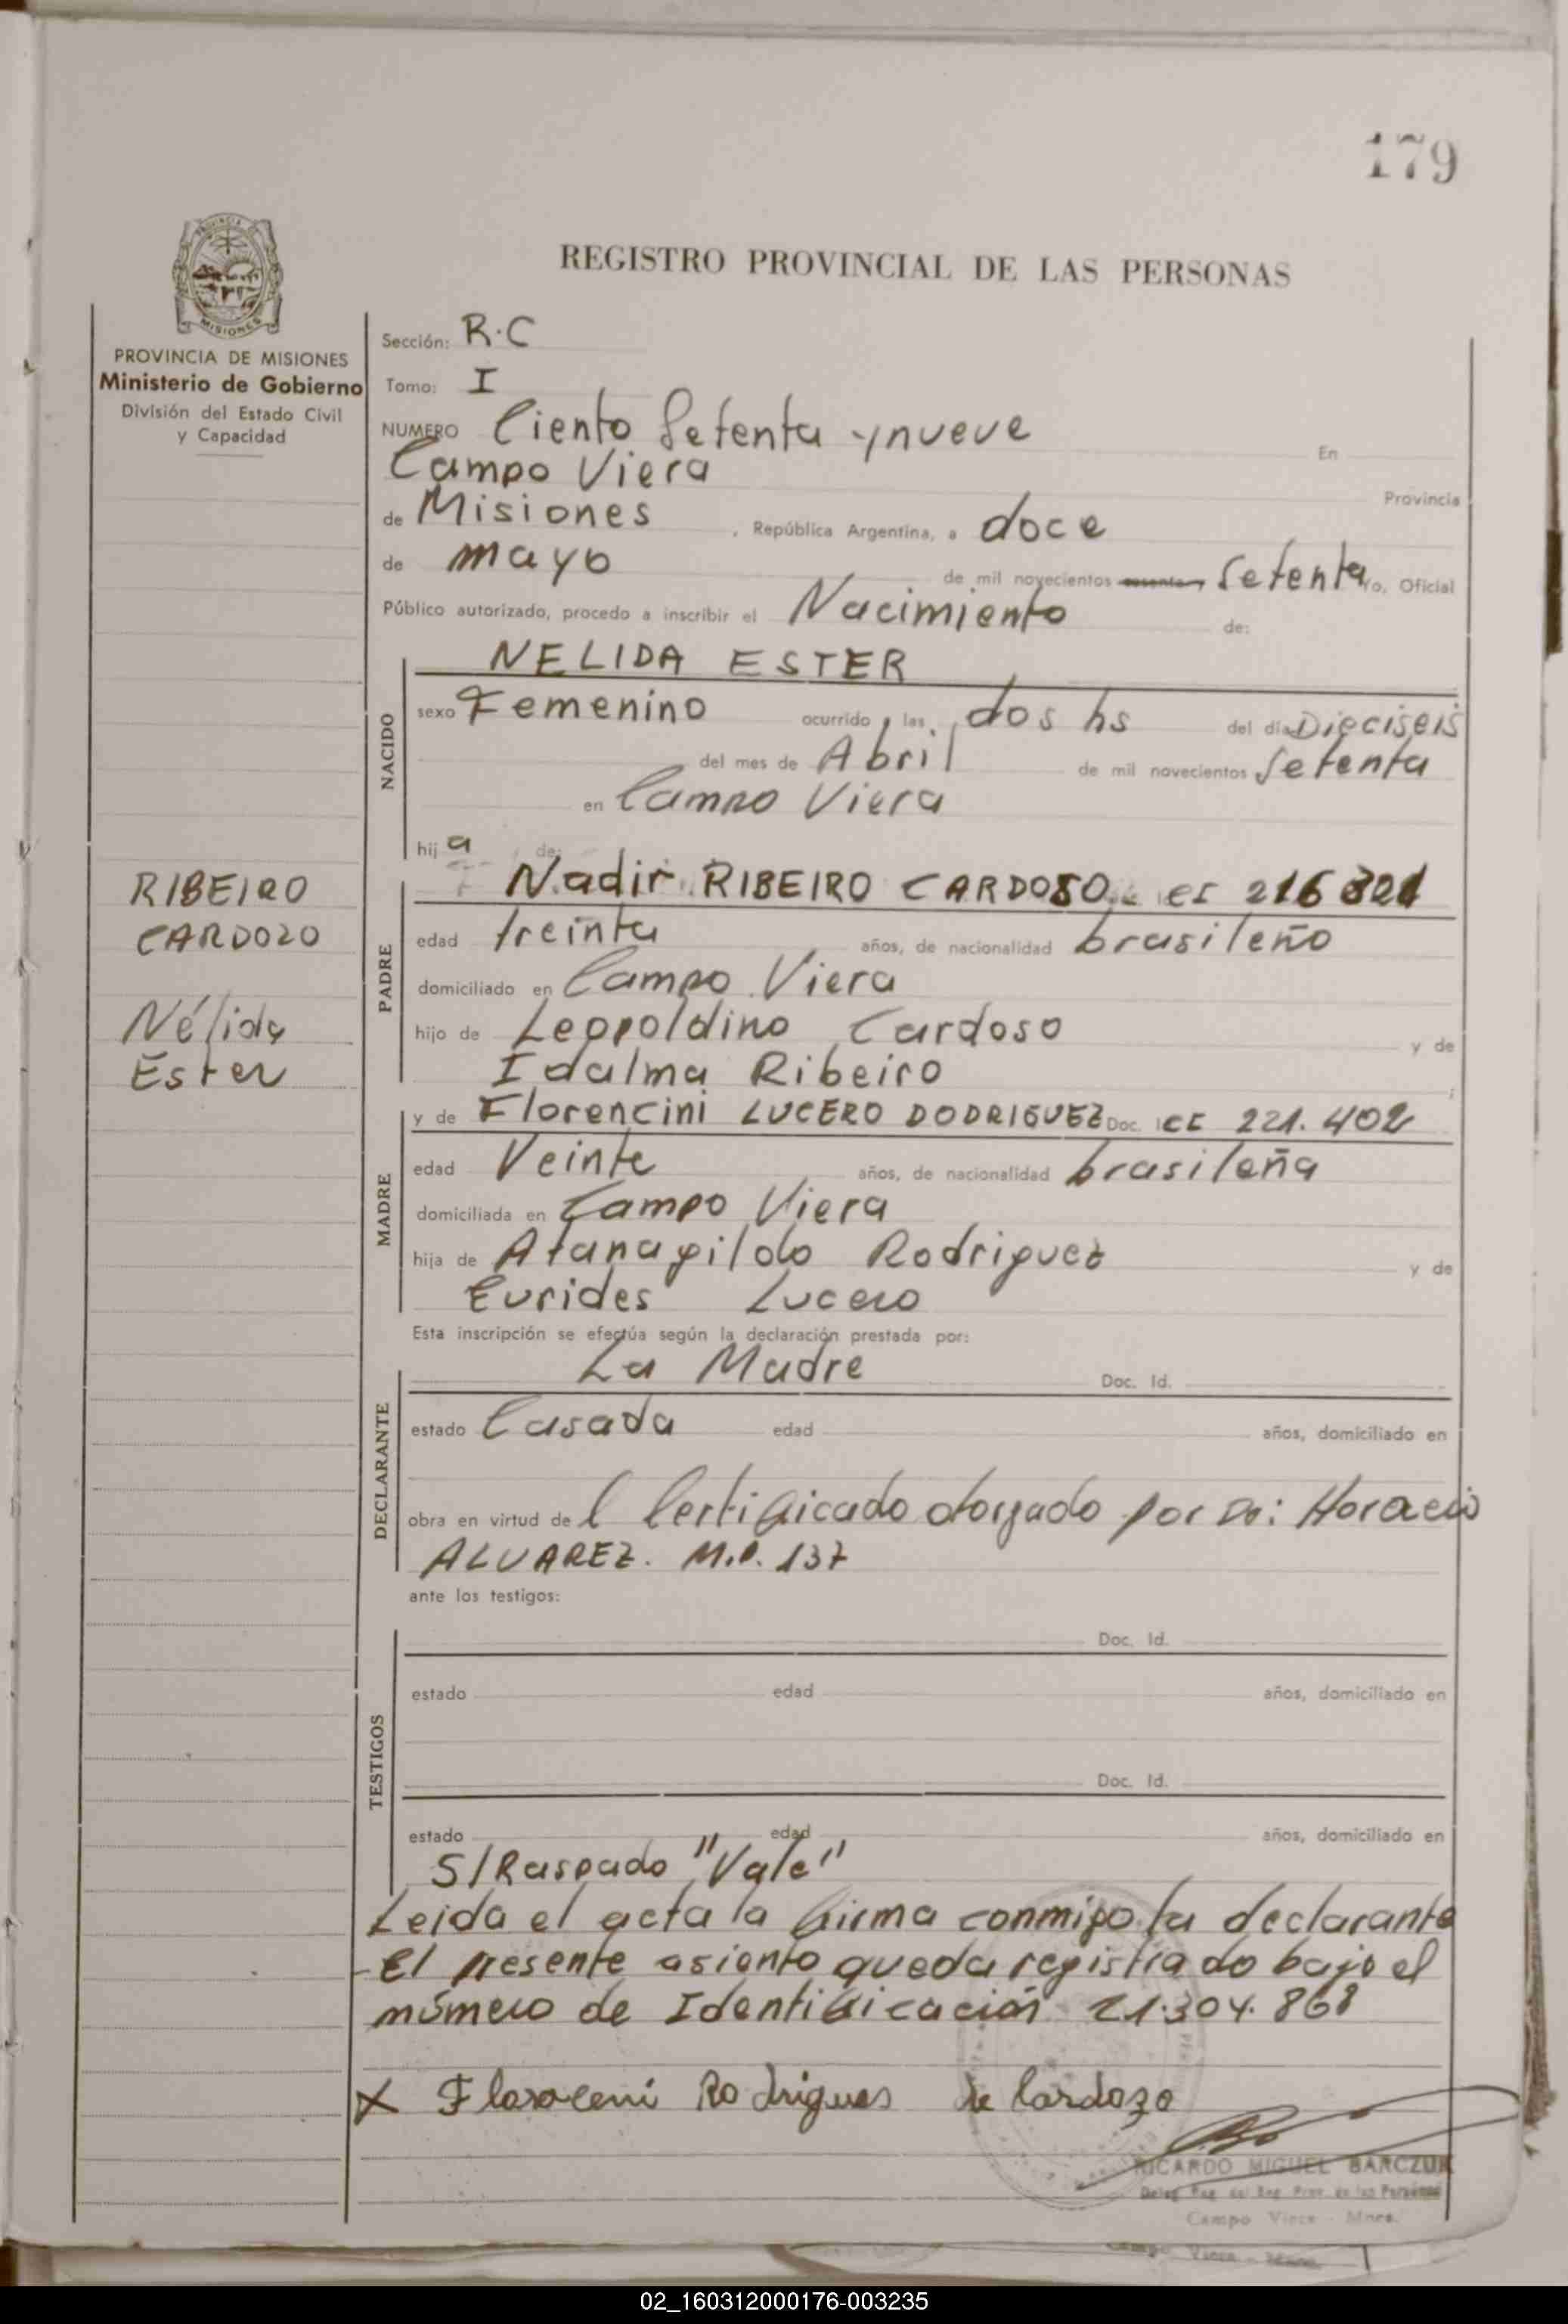 179
MISIONES
PROVINCIA DE MISIONES
Ministerio de Gobierno
División del Estado Civil
y Capacidad
REGISTRO PROVINCIAL DE LAS PERSONAS
Sección: R.C
Tomo: I
NUMERO Ciento Setenta y nueve En
Campo Viera Provincia
de Misiones, República Argentina, a doce
de mayo de mil novecientos Setenta yo, Oficial
Público autorizado, procedo a inscribir el Nacimiento de:
NACIDO
NELIDA ESTER
sexo Femenino ocurrido a las dos hs del día Dieciseis
del mes de Abril de mil novecientos Setenta
en Campo Viera
hija de:
RIBEIRO
CARDOZO
Nélida
Ester
PADRE
Nadir RIBEIRO CARDOSO
edad treinta años, de nacionalidad brasileño
domiciliado en Campo Viera
hijo de Leopoldino Cardoso y de
Idalma Ribeiro
MADRE
y de Florencini LUCERO DODRIGUEZ Doc. 221.402
edad Veinte años, de nacionalidad brasileña
domiciliada en Campo Viera
hija de Atanagildo Rodriguez y de
Eurides Lucero
Esta inscripción se efectúa según la declaración prestada por:
DECLARANTE
La Madre Doc. Id.
estado Casada edad años, domiciliado en
obra en virtud del Certificado otorgado por Dr: Horacio
ALVAREZ. M.P. 137
ante los testigos:
TESTIGOS
Doc. Id.
estado edad años, domiciliado en
Doc. Id.
estado edad años, domiciliado en
S/Raspado "Vale"
Leida el acta la firma conmigo la declarante
El presente asiento queda registrado bajo el
número de Identificación 21.304.868
X Floroceni Rodrigues de Cardozo
RICARDO MIGUEL BARCZUK
Campo Viera - Mnes.
02_160312000176-003235